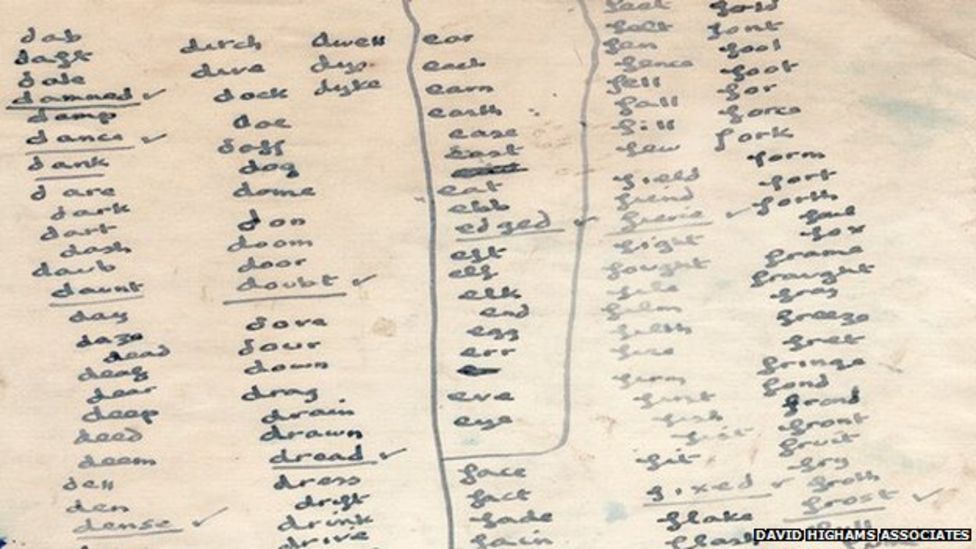 dab
daft
dale
damned
damp
dance
dank
dare
dark
dart
dash
daub
daunt
day
daze
dead
deaf
dear
deep
deed
deem
dell
den
dense
ditch
dive
dock
doe
doff
dog
dome
don
doom
door
doubt
dove
dour
down
drag
drain
drawn
dread
dress
drift
drink
drive
dwell
dye
dyke
ear
each
earn
earth
ease
east
eat
ebb
edged
eft
elf
elk
end
egg
err
eve
eye
face
fact
fade
fain
feet
felt
fen
fence
fell
fall
fill
few
field
fiend
fierce
fight
fought
file
film
filth
fire
firm
first
fish
fist
fit
fixed
flake
flash
fold
font
fool
foot
for
force
fork
form
fort
forth
foul
fox
frame
fraught
fray
freeze
fret
fringe
fond
frond
front
fruit
fry
froth
frost
full
DAVID HIGHAMS ASSOCIATES